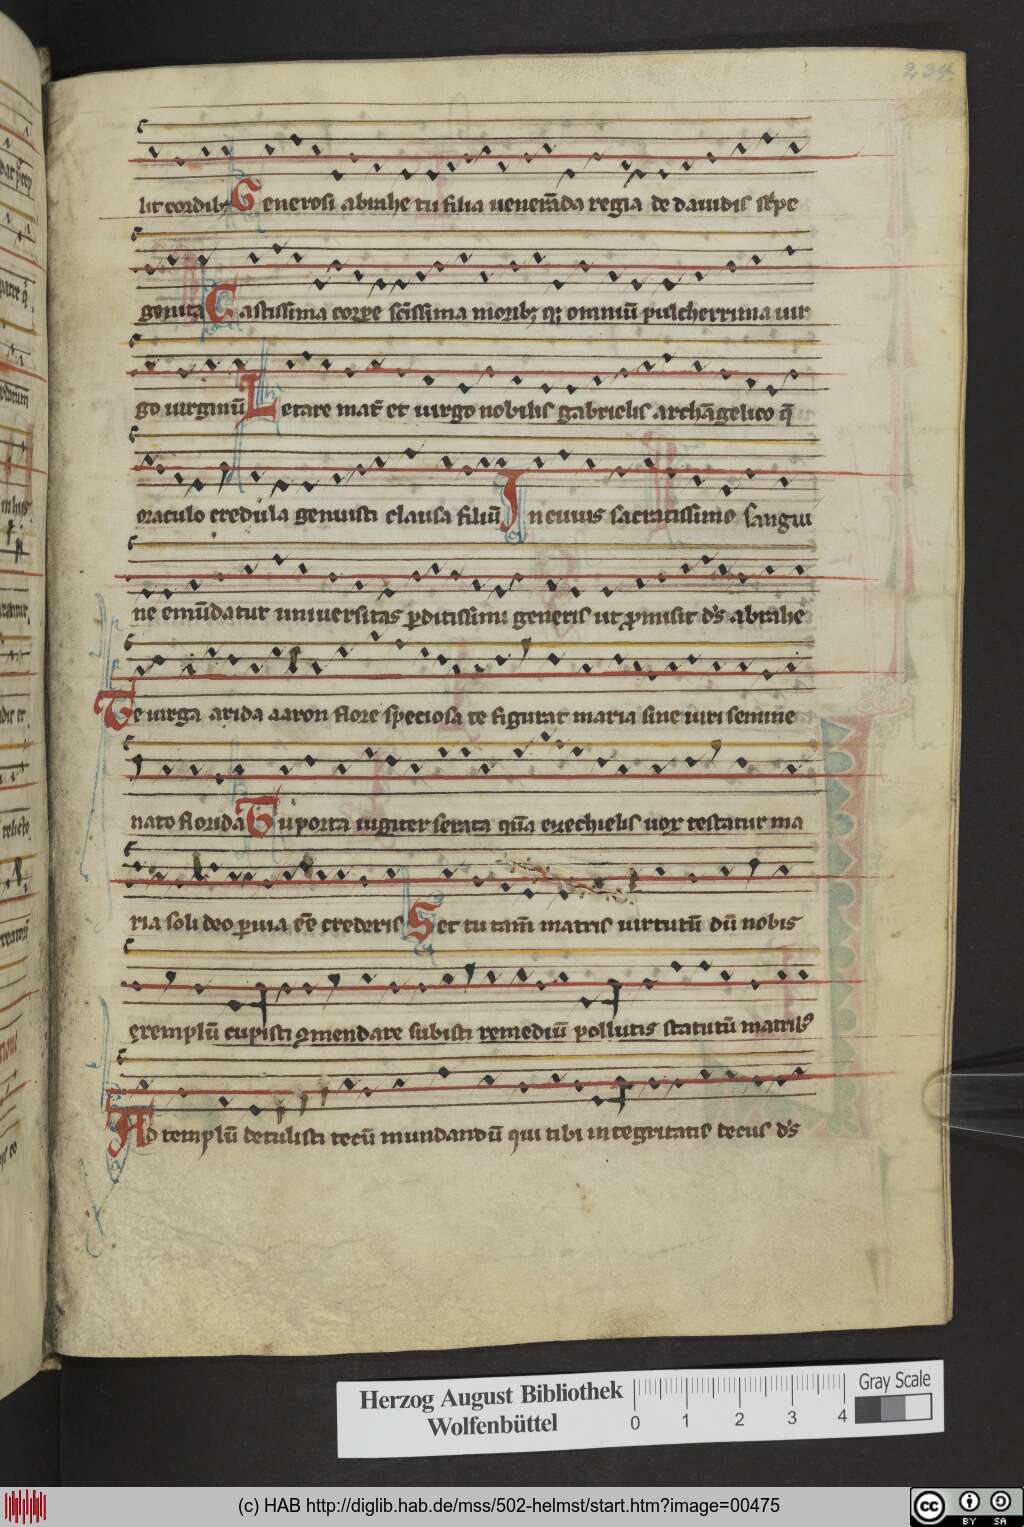 234.
lit cordibꝫ Generosi abrahe tu filia ueneͬāda regia de dauidis stͥpe
genita Castissima corꝑe scīssima moribꝫ qꝫ omniū pulcherrima uir
go uirginū Letare mat̄ et uirgo nobilis gabrielis archāgelico q̄
oraculo credula genuisti clausa filiū In cuius sacratissimo sangui
ne emūdatur uniuersitas ꝑditissimi generis ut ꝓmisit ds̄ abrahe
Te uirga arida aaron flore speciosa te figurat maria sine uiri semine
nato florida Tu porta iugiter serata quā ezechielis uox testatur ma
ria soli deo ꝑuia eē̄ crederis Set tu tam̄ matris uirtutū dū nobis
exemplū cupisti ꝯmendare subisti remediū pollutis statutū matribꝰ
Ad templū detulisti tecū mundandū qui tibi integritatis decus ds̄
Herzog August Bibliothek
Wolfenbüttel
0 1 2 3 4
Gray Scale
(c) HAB http://diglib.hab.de/mss/502-helmst/start.htm?image=00475
cc BY SA